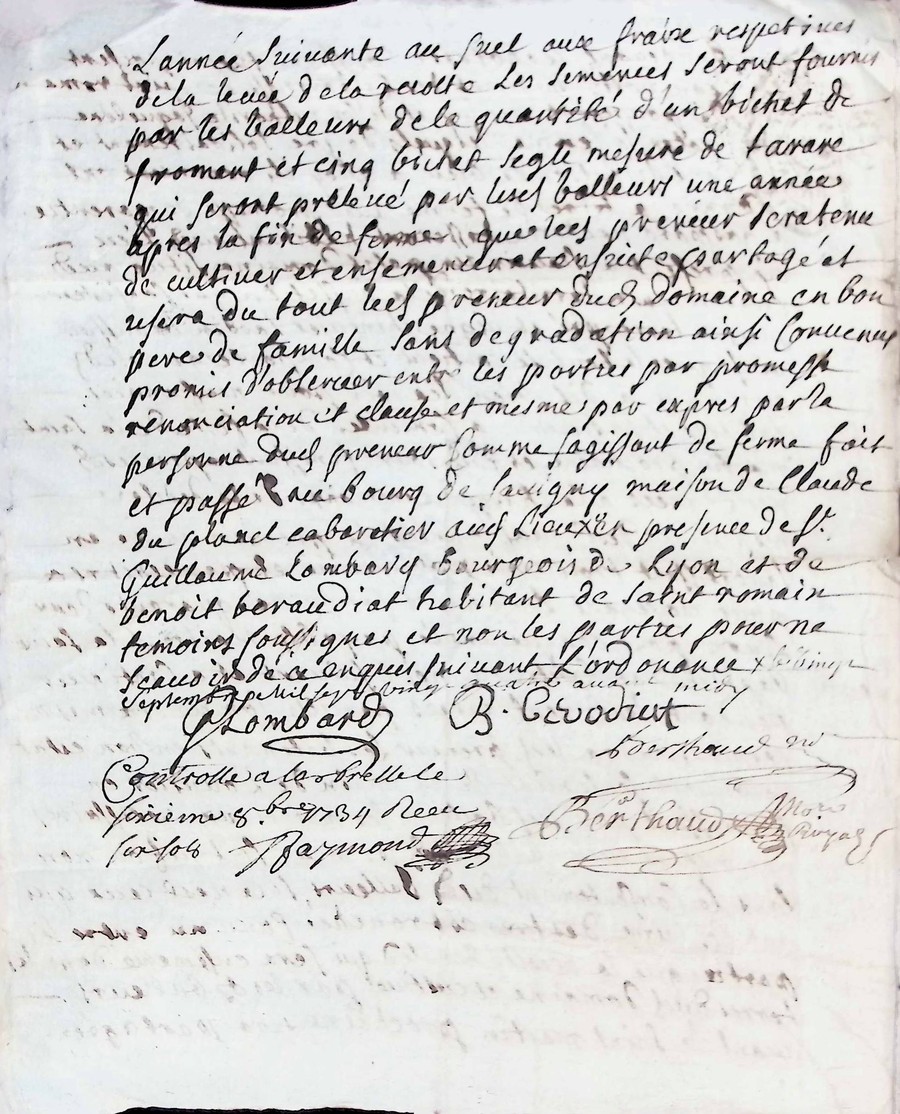 L'année suivante au suel aux fraixe respetives
de la levée de la recolte Les semences seront fournis
par les bailleurs de la quantité d'un bichet de
froment et cinq bichet segle mesure de tarare
qui seront prélevé par lesd bailleurs une année
apres la fin de ferme que led preneur sera tenu
de cultiver et ensemencer et ensuite partagé et
usera du tout led preneur dud domaine en bon
pere de famille sans degradation ainsi Convenus
promis d'observer entre les parties par promesse
renonciation et clause et mesme par expres par la
personne dud preneur comme sagissant de ferme fait
et passé au bourg de savigny maison de Claude
du cabaretier aud Lieu En presence de Sr
Guillaume Lombard bourgeois de Lyon et de
benoit beraudiat habitant de saint romain
temoins soussignes et non les parties pour ne
scavoir de ce enquis suivant L'ordonance
septembre mil sept vingt quatre avant midy
G Lombard B. Cevodiat
Berthaud no
Controlle a larbrelle le
sixieme 8.bre 1734 Receu
six sols Raymond
Berthaud Nore Royal